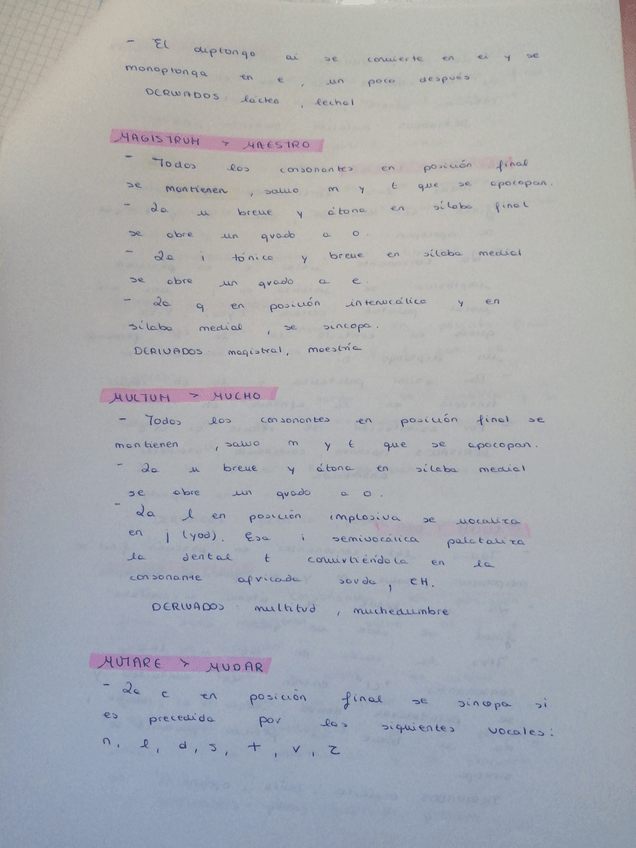 - El diptongo ai se convierte en ei y se
monoptonga en e, un poco después.
DERIVADOS lácteo, lechal
MAGISTRUM > MAESTRO
- Todas las consonantes en posición final
se mantienen, salvo m y t que se apocopan.
- La u breve y átona en sílaba final
se abre un grado a o.
- La i tónica y breve en sílaba medial
se abre un grado a e.
- La g en posición intervocálica y en
sílaba medial, se sincopa.
DERIVADOS magistral, maestría
MULTUM > MUCHO
- Todas las consonantes en posición final se
mantienen, salvo m y t que se apocopan.
- La u breve y átona en sílaba medial
se abre un grado a o.
- La l en posición implosiva se vocaliza
en j (yod). Esa i semivocálica palataliza
la dental t convirtiéndola en la
consonante africada sorda, CH.
DERIVADOS multitud, muchedumbre
MUTARE > MUDAR
- La e en posición final se sincopa si
es precedida por las siguientes vocales:
n, l, d, s, t, v, z